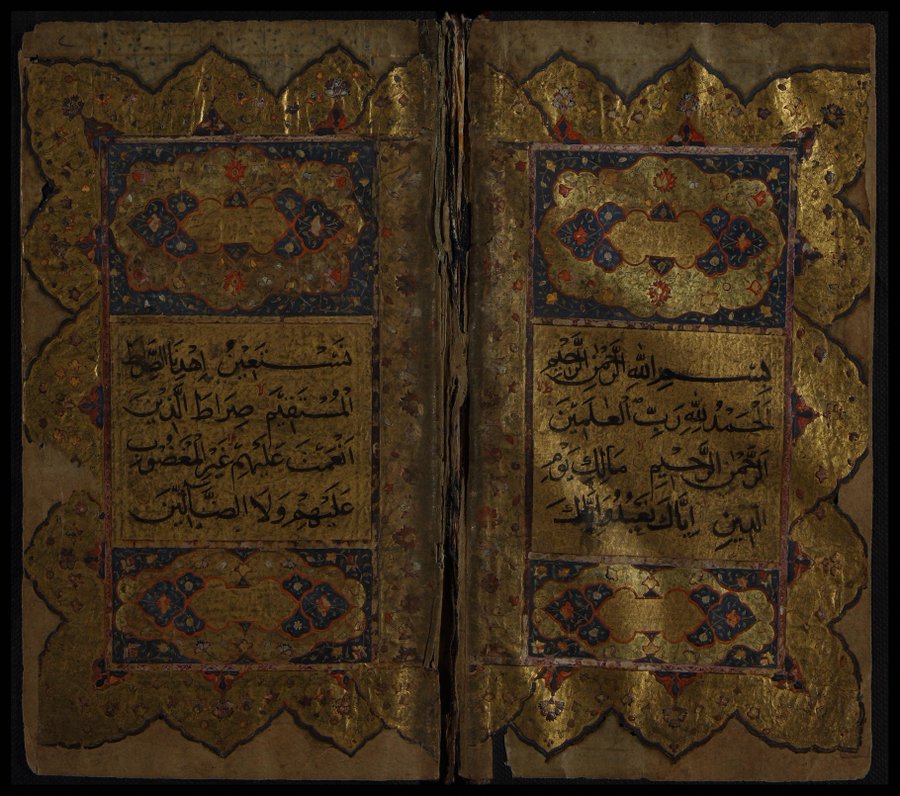 بِسْمِ اللّٰهِ الرَّحْمٰنِ الرَّحِيمِ
اَلْحَمْدُ لِلّٰهِ رَبِّ الْعٰلَمِينَ
اَلرَّحْمٰنِ الرَّحِيمِ مَالِكِ يَوْمِ
الدِّينِ اِيَّاكَ نَعْبُدُ وَاِيَّاكَ
نَسْتَعِينُ اِهْدِنَا الصِّرَاطَ
الْمُسْتَقِيمَ صِرَاطَ الَّذِينَ
اَنْعَمْتَ عَلَيْهِمْ غَيْرِ الْمَغْضُوبِ
عَلَيْهِمْ وَلَا الضَّآلِّينَ